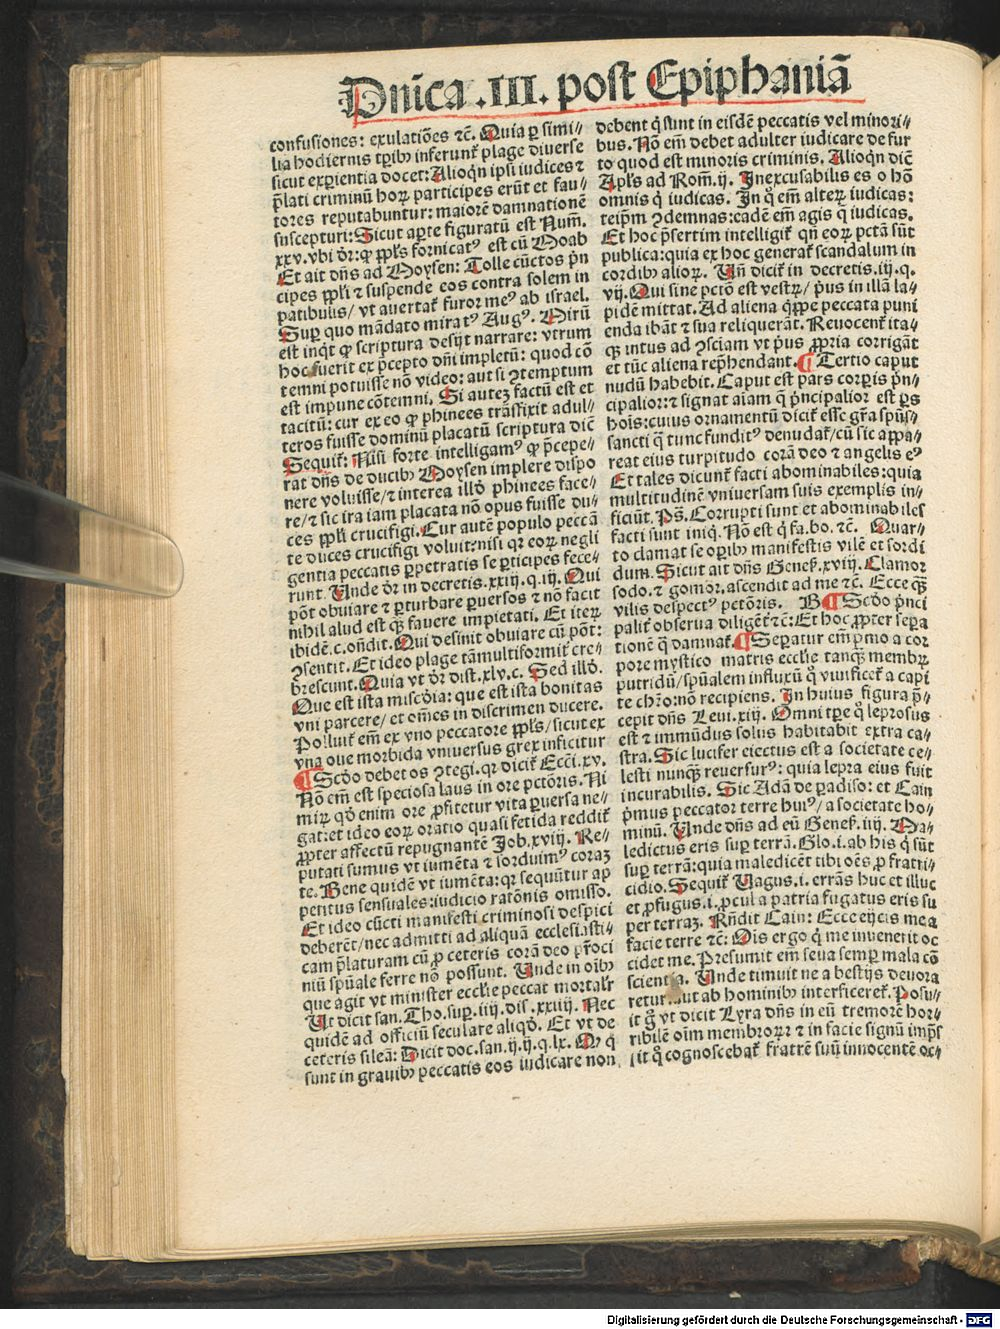 Dnĩca .III. post Epiphaniã
confusiones: exulatiões ⁊c̃. Quia ꝑ simi⸗
lia hodiernis tꝑibꝰ inferunt̃ plage diuerse
sicut exꝑientia docet: Alioqͥn ipsi iudices ⁊
p̃lati criminũ hoꝝ participes erũt et fau⸗
tores reputabuntur: maiorẽ damnationẽ
suscepturi: Sicut aꝑte figuratũ est Num̃.
xxv. vbi dr̃: ꝙ pp̃ls fornicatꝰ est cũ Moab
Et ait dñs ad Moysen: Tolle cũctos pͥn
cipes pp̃li ⁊ suspende eos contra solem in
patibulis/ vt auertat̃ furor meꝰ ab israel.
Suꝑ quo mãdato miratꝰ Augꝰ. Mirũ
est inqͥt ꝙ scriptura desijt narrare: vtrum
hoc fuerit ex p̃cepto dñi impletũ: quod cõ
temni potuisse nõ video: aut si ↄtemptum
est impune cõtemni. Si autez factũ est et
tacitũ: cur ex eo ꝙ phinees trãsfixit adul⸗
teros fuisse dominũ placatũ scriptura dic̃
Sequit̃: Nisi forte intelligamꝰ ꝙ p̃cepe⸗
rat dñs de ducibꝰ Moysen implere dispo
nere voluisse/ ⁊ interea illo̊ phinees face⸗
re/ ⁊ sic ira iam placata nõ opus fuisse du⸗
ces pp̃li crucifigi. Cur autẽ populo peccã
te duces crucifigi voluit: nisi qꝛ eoꝝ negli
gentia peccatis ꝑpetratis se ꝑticipes fece⸗
runt. Unde dr̃ in decretis. xxiij. q. iij. Qui
põt obuiare ⁊ ꝑturbare ꝑuersos ⁊ nõ facit
nihil alud est qͣ̃ fauere impietati. Et iteꝝ
ibidẽ. c. oñdit. Qui desinit obuiare cũ põt:
ↄsentit. Et ideo plage tãmultiformit̃ cre⸗
brescunt. Quia vt dr̃ dist. xlv. c. Sed illo̊.
Que est ista miscd̃ia: que est ista bonitas
vni parcere/ et oẽs in discrimen ducere.
Polluit̃ em̃ ex vno peccatore pp̃ls/ sicut ex
vna oue morbida vniuersus grex inficitur
¶ Scd̃o debet os ↄtegi. qꝛ dicit̃ Ecci. xv.
Nõ em̃ est speciosa laus in ore pctõris. Ni
miꝝ qd̃ enim ore ꝓfitetur vita ꝑuersa ne⸗
gat: et ideo eoꝝ oratio quasi fetida reddit̃
ꝓpter affectũ repugnantẽ Job. xviij. Re⸗
putati sumus vt iumẽta ⁊ sorduimꝰ coraz
te. Bene quidẽ vt iumẽta: qꝛ sequũtur ap
petitus sensuales: iudicio ratõnis omisso.
Et ideo cũcti manifesti criminosi despici
deberẽt/ nec admitti ad aliquã ecclesiasti⸗
cam p̃laturam cũ ꝓ ceteris corã deo pr̃oci
niũ spũale ferre nõ possunt. Unde in oĩbꝰ
que agit vt minister ecclĩe peccat mortalr̃
Ut dicit san. Tho. suꝑ. iiij. dis. xxiiij. Nec
quidẽ ad officiũ seculare aliqd̃. Et vt de
ceteris sileã: Dicit doc. san. ij. ij. q. lx. Qͫ qͥ
sunt in grauibꝰ peccatis eos iudicare non
debent qͥ sunt in eisdẽ peccatis vel minori⸗
bus. Nõ em̃ debet adulter iudicare de fur
to quod est minoris criminis. Alioqͥn dic̃
Apl̃s ad Rom̃. ij. Inexcusabilis es o hõ
omnis qͥ iudicas. In qͦ em̃ alteꝝ iudicas:
teipm̃ ↄdemnas: eadẽ em̃ agis q̃ iudicas.
Et hoc p̃sertim intelligit̃ qñ eoꝝ pctã sũt
publica: quia ex hoc generat̃ scandalum in
cordibꝰ alioꝝ. Uñ dicit̃ in decretis. iij. q.
vij. Qui sine pctõ est vestꝝ/ pͥus in illã la⸗
pidẽ mittat. Ad aliena qͥppe peccata puni
enda ibãt ⁊ sua reliquerãt. Reuocent̃ ita⸗
qꝫ intus ad ↄsciam vt pͥus ꝓpria corrigãt
et tũc aliena repͥhendant. ¶ Tertio caput
nudũ habebit. Caput est pars corꝑis pͥn⸗
cipalior: ⁊ signat aĩam q̃ pͥncipalior est ꝑs
hoĩs: cuius ornamentũ dicit̃ esse gr̃a spũs⸗
sancti q̃ tunc fundit⁹ denudat̃/ cũ sic appa⸗
reat eius turpitudo corã deo ⁊ angelis eꝰ
Et tales dicunt̃ facti abominabiles: quia
multitudinẽ vniuersam suis exemplis in⸗
ficiũt. Pš. Corrupti sunt et abominabiles
facti sunt iniqͥ. Nõ est qͥ fa. bo. ⁊c̃. Quar⸗
to clamat se oꝑibꝰ manifestis vilẽ et sordi
dum. Sicut ait dñs Genes̃. xviij. Clamor
sodo. ⁊ gomor. ascendit ad me ⁊c̃. Ecce qͣ̃
vilis despectꝰ pctõris. B ¶ Scd̃o pͥnci
palit̃ obserua diligẽt̃ ⁊c̃: Et hoc ꝓpter sepa
tionẽ q̃ damnat̃. ¶ Seꝑatur em̃ pͥmo a cor
pore mystico matris ecclĩe tanqͣ̃ membꝝ
putridũ/ spũalem influxũ qͦ viuificet̃ a capi
te chr̃o: nõ recipiens. In huius figura p̃⸗
cepit dñs Leui. xiij. Omni tꝑe qͦ leprosus
est ⁊ immũdus solus habitabit extra ca⸗
stra. Sic lucifer eiectus est a societate ce⸗
lesti nunqͣ̃ reuersurꝰ: quia lepra eius fuit
incurabilis. Sic Adã de ꝑadiso: et Cain
pͥmus peccator terre huiꝰ/ a societate ho⸗
minũ. Unde dñs ad eũ Genes̃. iiij. Ma⸗
ledictus eris suꝑ terrã. Glo. i. ab his qͥ sũt
suꝑ terrã: quia maledicẽt tibi oẽs ꝓ fratri⸗
cidio. Sequit̃ Uagus. i. errãs huc et illuc
et ꝓfugus. i. ꝓcul a patria fugatus eris su
per terraz. Rñdit Cain: Ecce eijcis me a
facie terre ⁊c̃: Oĩs ergo qͥ me inuenerit oc
cidet me. Presumit em̃ seua semꝑ mala cõ
scientia. Unde timuit ne a bestijs deuora
retur aut ab hominibꝰ interficeret̃. Posu⸗
it gͦ vt dicit Lyra dñs in eũ tremorẽ hor⸗
ribilẽ oĩm membroꝝ: ⁊ in facie signũ imp̃s
sit qͦ cognoscebat̃ fratrẽ suũ innocentẽ oc⸗
Digitalisierung gefördert durch die Deutsche Forschungsgemeinschaft - DFG